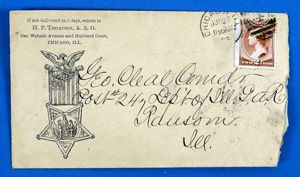 If not delivered in 5 days, return to
H. P. THOMPSON, A. A. G.
Cor. Wabash Avenue and Hubbard Court,
CHICAGO, ILL.
CHICAGO
Geo, Cleal Comdr
Post 24, Dept of Ill, G.A.R
Ransom
Ill.